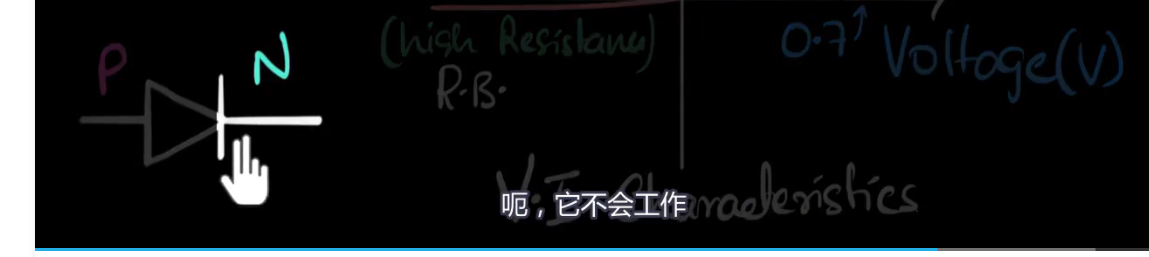 P N
(high Resistance)
R.B.
0.7↑ Voltage(V)
V.I. Characteristics
呃，它不会工作